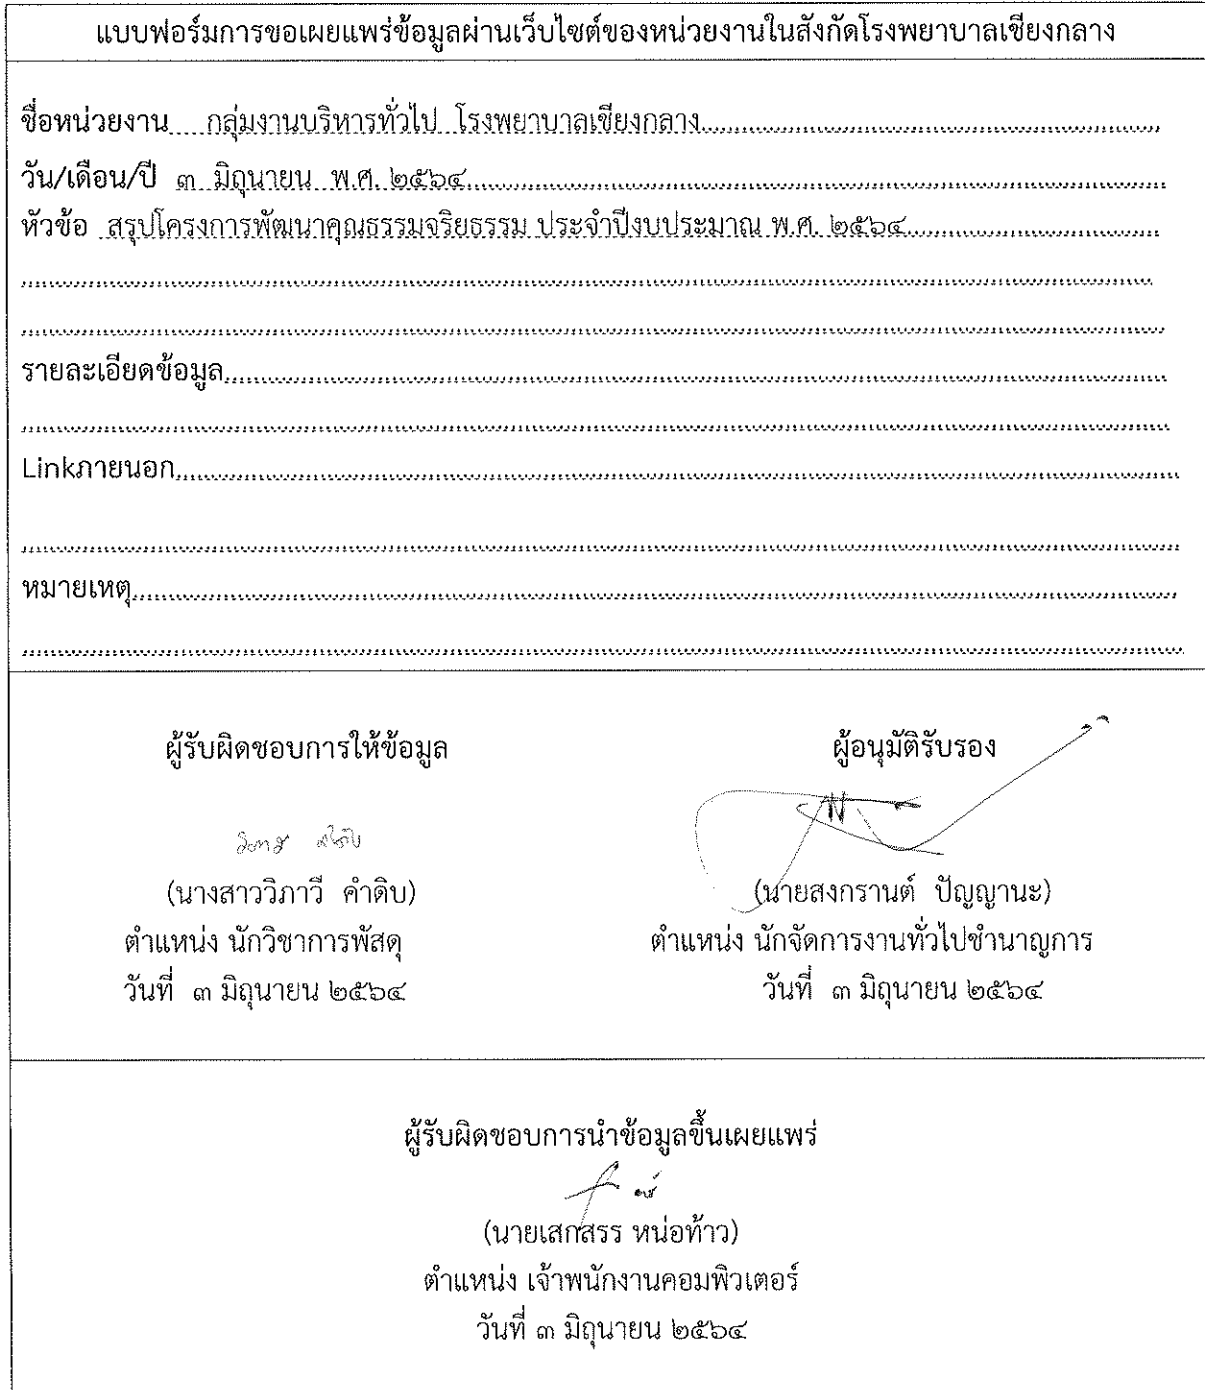 แบบฟอร์มการขอเผยแพร่ข้อมูลผ่านเว็บไซต์ของหน่วยงานในสังกัดโรงพยาบาลเชียงกลาง
ชื่อหน่วยงาน กลุ่มงานบริหารทั่วไป โรงพยาบาลเชียงกลาง
วัน/เดือน/ปี ๓ มิถุนายน พ.ศ. ๒๕๖๔
หัวข้อ สรุปโครงการพัฒนาคุณธรรมจริยธรรม ประจำปีงบประมาณ พ.ศ. ๒๕๖๔
รายละเอียดข้อมูล
Linkภายนอก
หมายเหตุ
ผู้รับผิดชอบการให้ข้อมูล
(นางสาววิภาวี คำดิบ)
ตำแหน่ง นักวิชาการพัสดุ
วันที่ ๓ มิถุนายน ๒๕๖๔
ผู้อนุมัติรับรอง
(นายสงกรานต์ ปัญญานะ)
ตำแหน่ง นักจัดการงานทั่วไปชำนาญการ
วันที่ ๓ มิถุนายน ๒๕๖๔
ผู้รับผิดชอบการนำข้อมูลขึ้นเผยแพร่
(นายเสกสรร หน่อท้าว)
ตำแหน่ง เจ้าพนักงานคอมพิวเตอร์
วันที่ ๓ มิถุนายน ๒๕๖๔